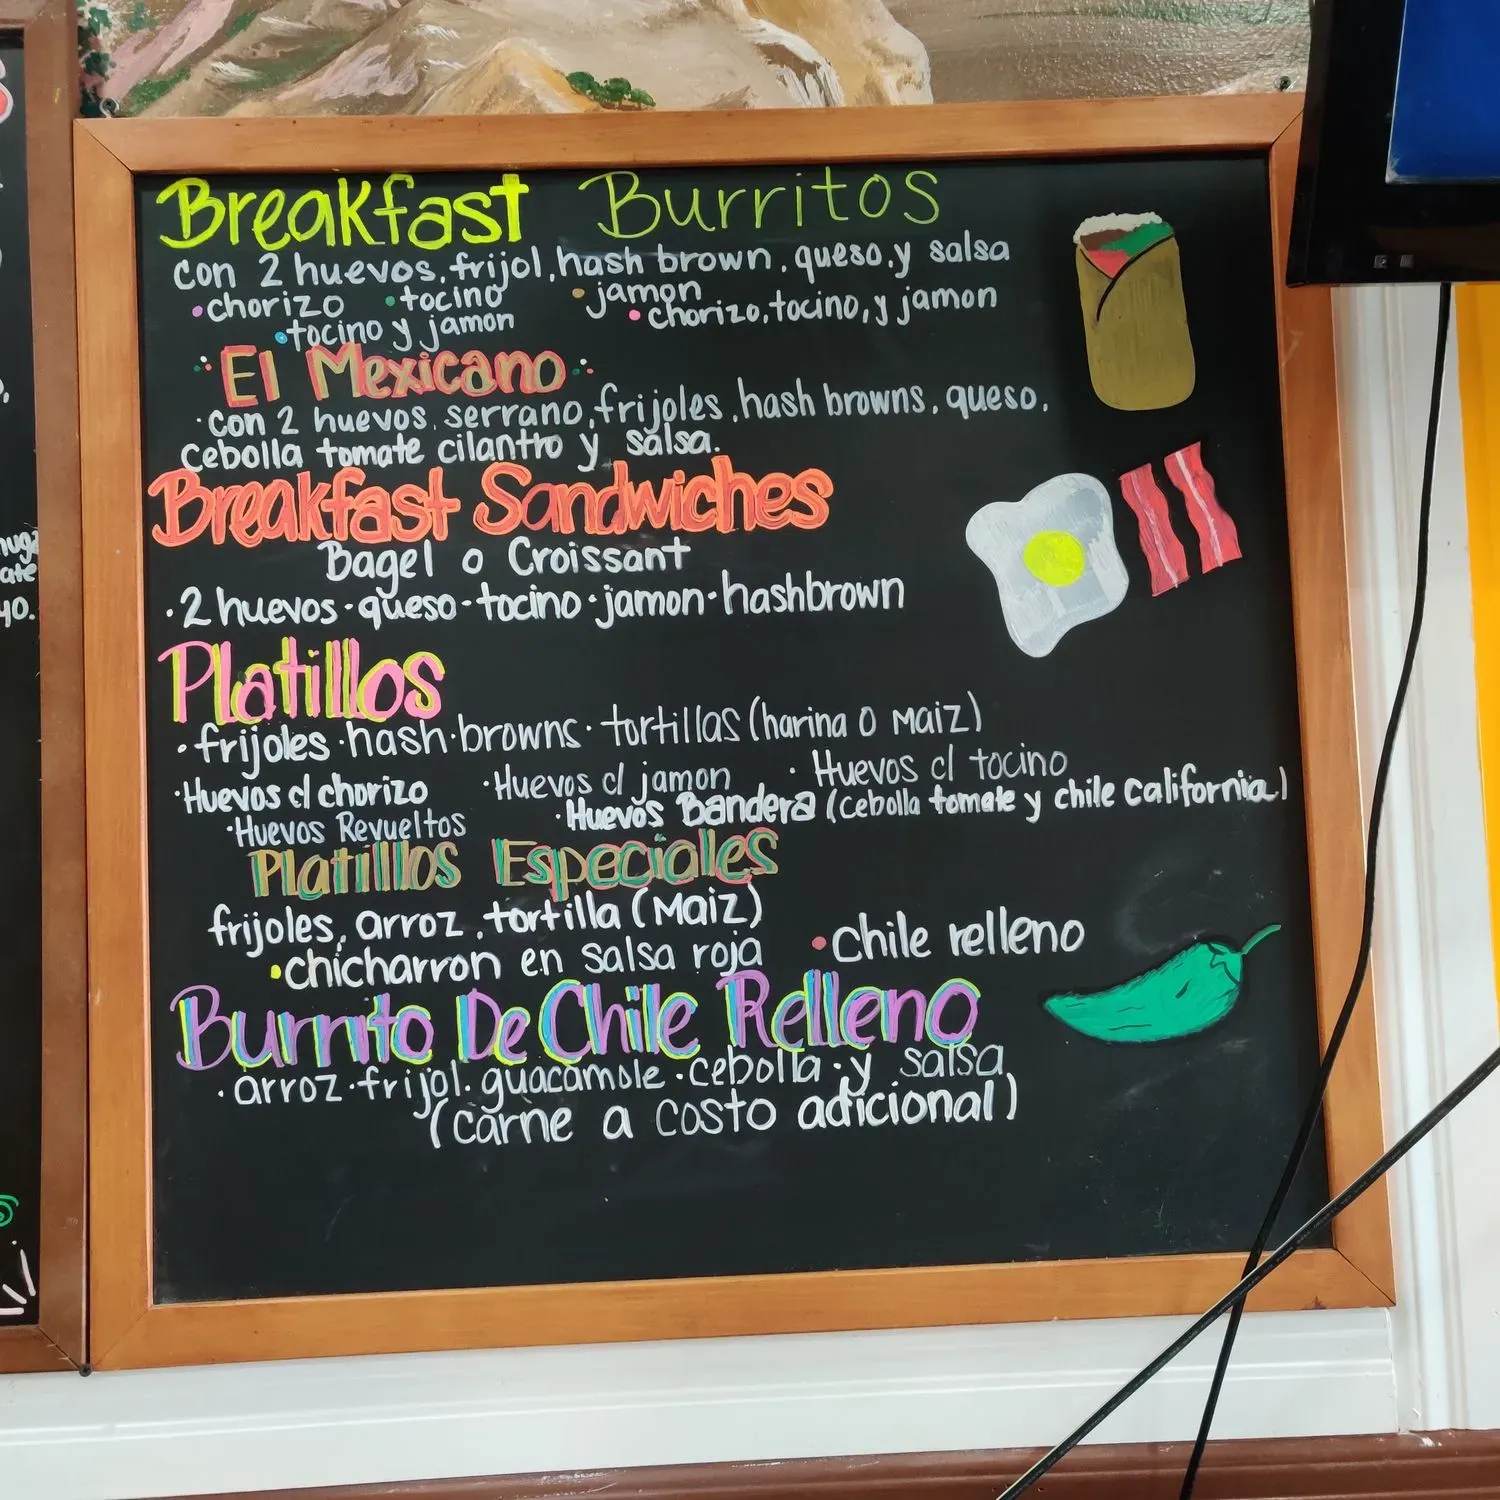 Breakfast Burritos
con 2 huevos, frijol, hash brown, queso, y salsa
•chorizo •tocino •jamon
•tocino y jamon •chorizo, tocino, y jamon
El Mexicano
·con 2 huevos, serrano, frijoles, hash browns, queso,
cebolla tomate cilantro y salsa.
Breakfast Sandwiches
Bagel o Croissant
·2 huevos·queso·tocino·jamon·hashbrown
Platillos
·frijoles·hash·browns·tortillas (harina o maiz)
·Huevos c/ chorizo ·Huevos c/ jamon ·Huevos c/ tocino
·Huevos Revueltos ·Huevos Bandera (cebolla tomate y chile california)
Platilllos Especiales
frijoles, arroz, tortilla (maiz)
•chicharron en salsa roja •chile relleno
Burrito De Chile Relleno
·arroz·frijol·guacamole·cebolla·y salsa
(carne a costo adicional)
yo.